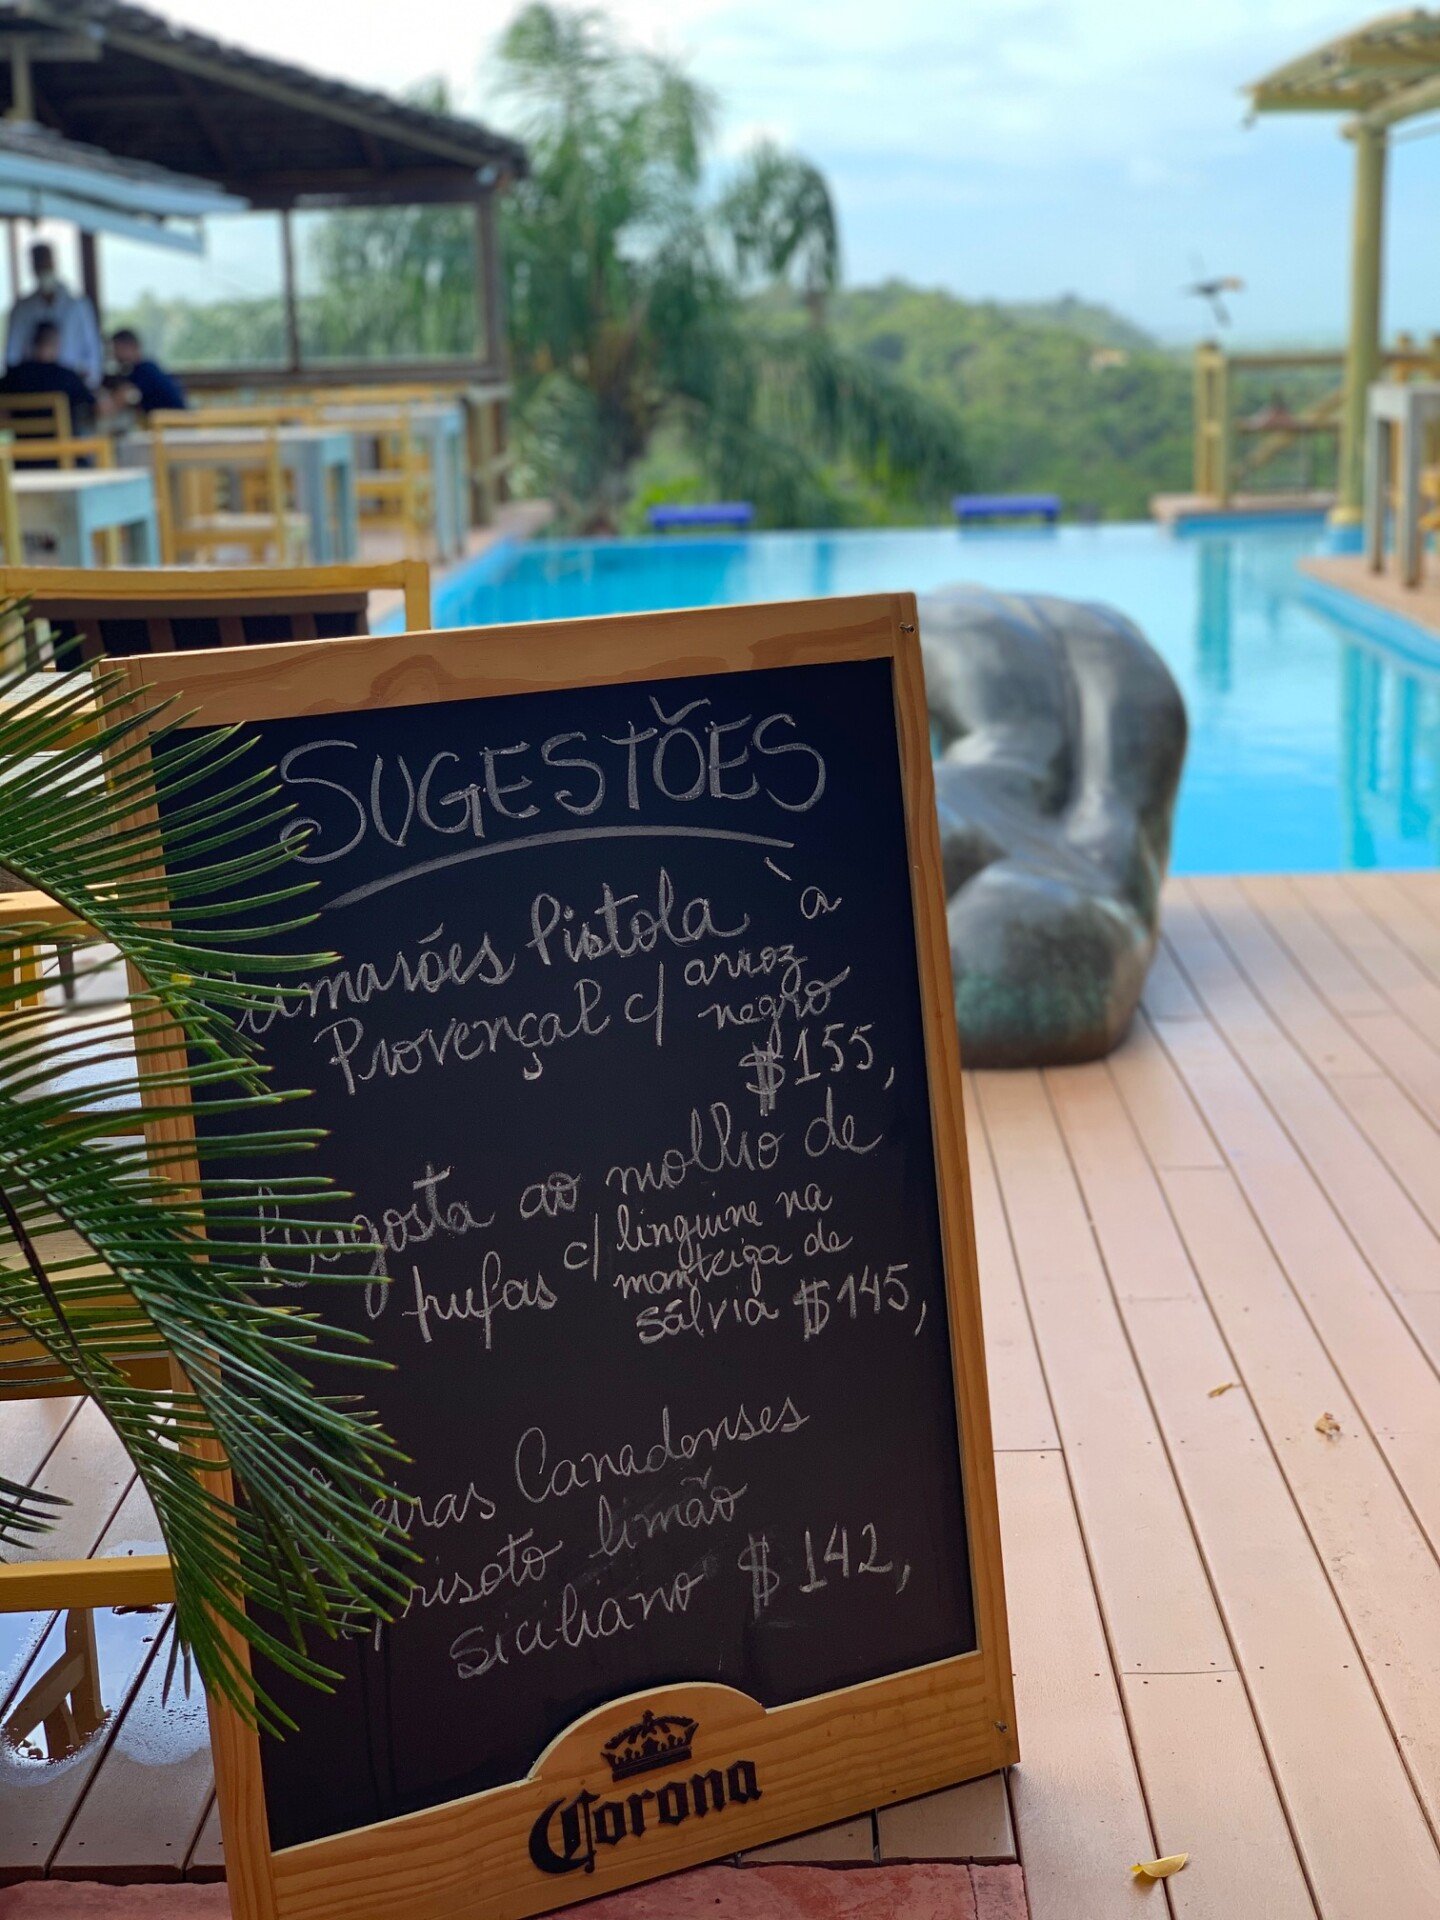 SUGESTÕES
Camarões Pistola à
Provençal c/ arroz
negro
$155,
Lagosta ao molho de
trufas c/ linguine na
manteiga de
sálvia $145,
Canadenses
risoto limão
siciliano $142,
Corona